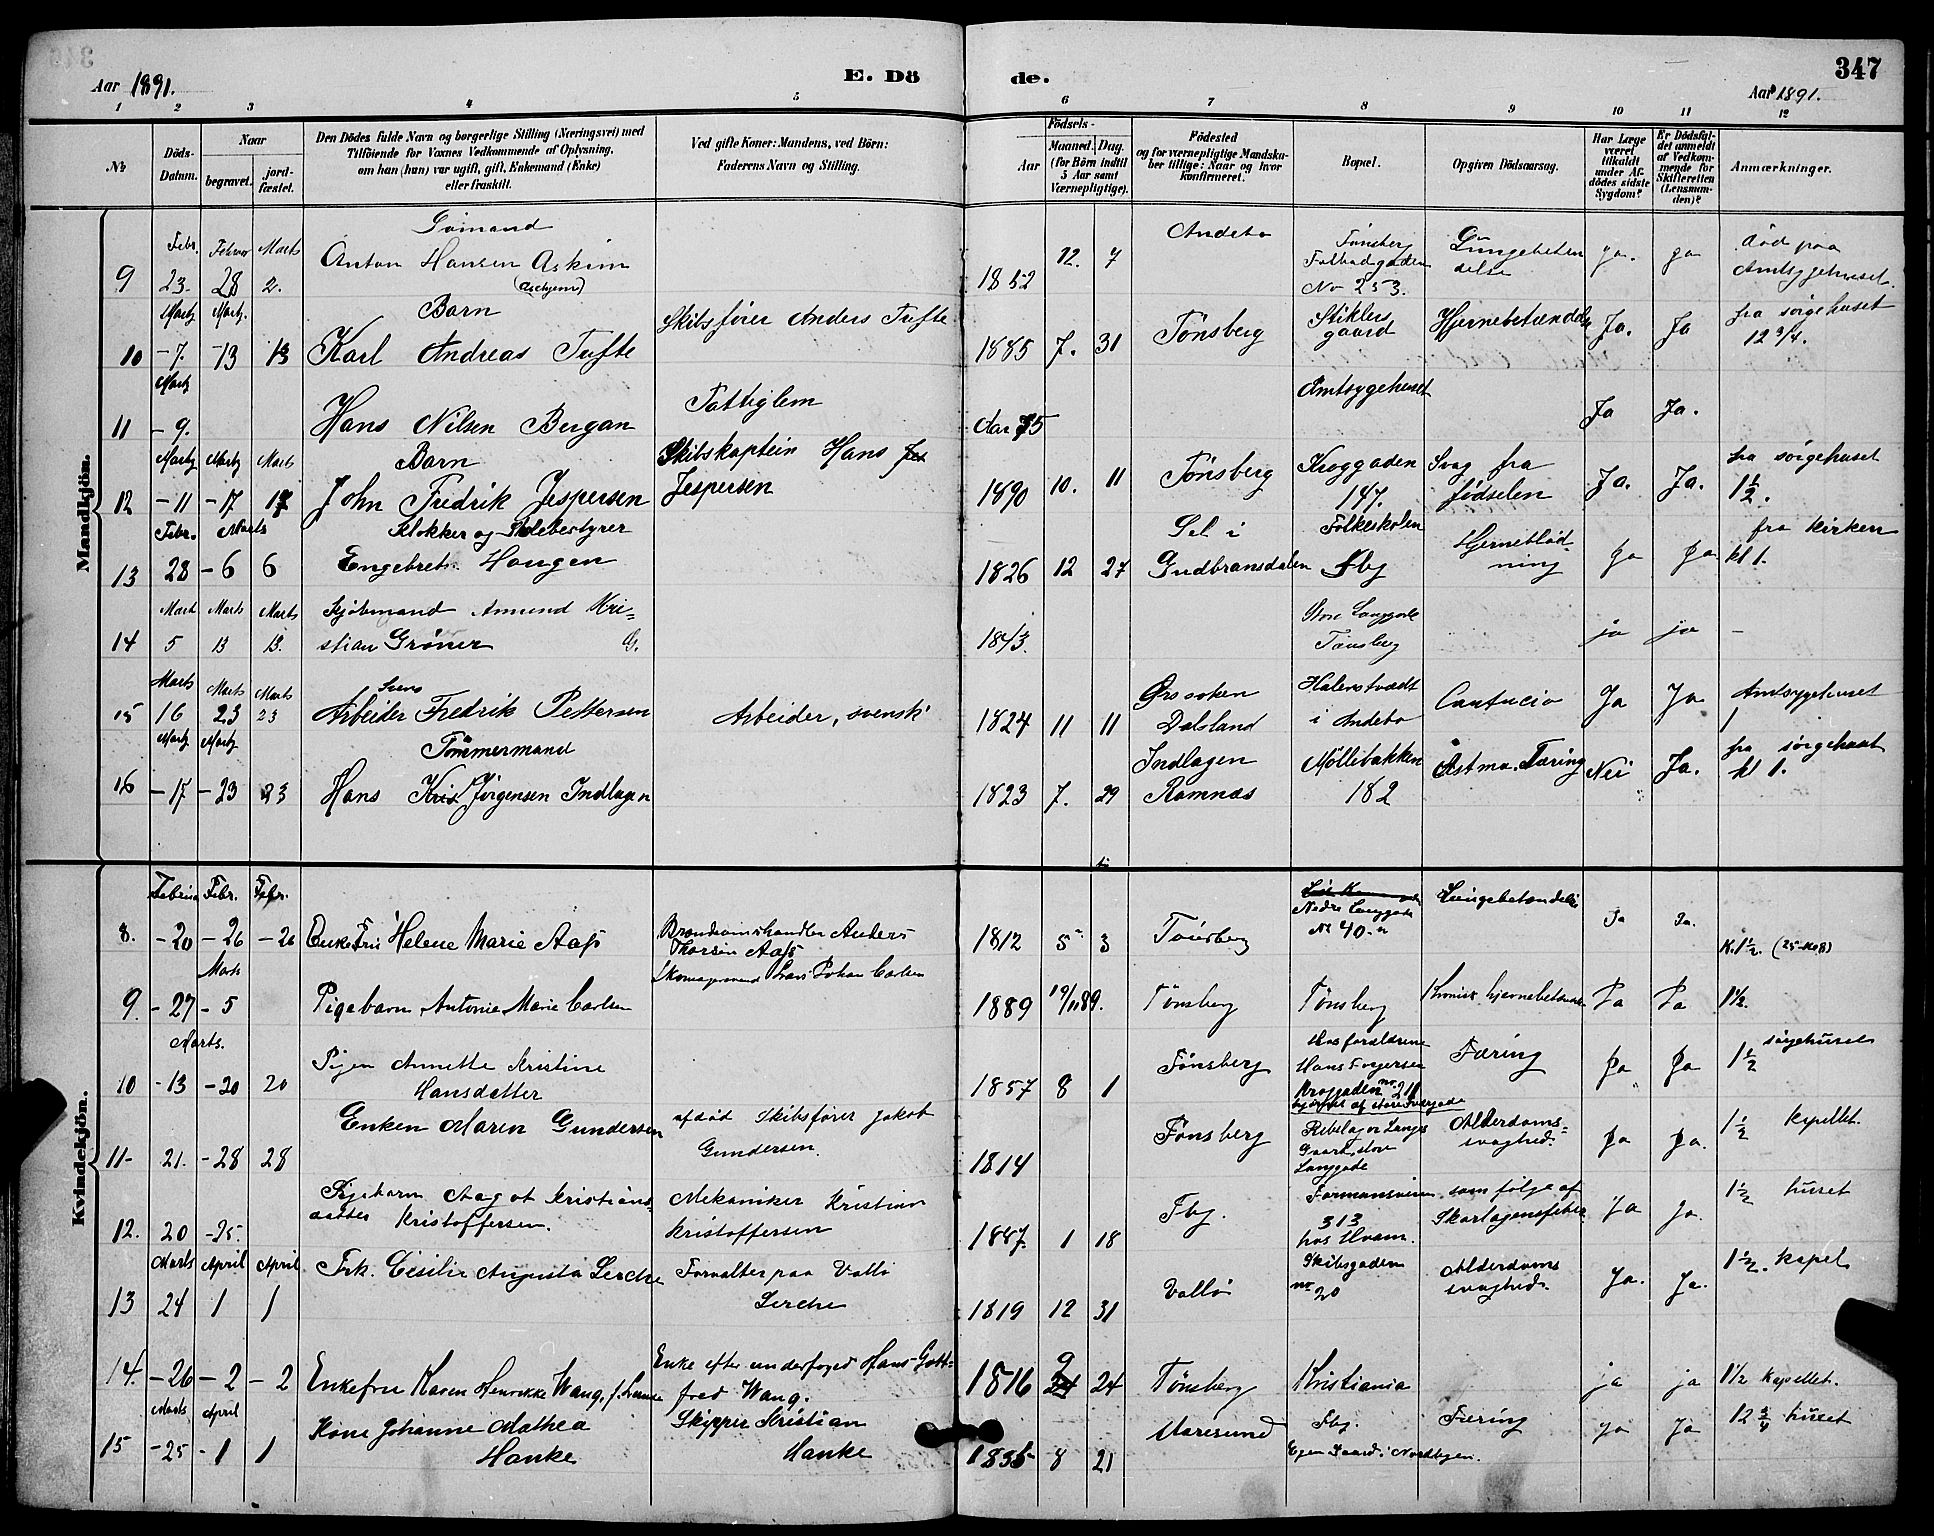 347
Aar 1891.
E. Dö de.
Aar 1891.
1 2 3 4 5 6 7 8 9 10 11 12
№
Döds-Datum.
Naar
begravet.
jordfæstet.
Den Dödes fulde Navn og borgerlige Stilling (Næringsvei) med
Tilföiende for Voxnes Vedkommende af Oplysning,
om han (hun) var ugift, gift, Enkemand (Enke)
eller fraskilt.
Ved gifte Koner: Mandens, ved Börn:
Faderens Navn og Stilling.
Födsels-
Aar
Maaned. Dag.
(for Börn indtil
5 Aar samt
Værnepligtige).
Födested
og for værnepligtige Mandskaber tillige: Naar og hvor
konfirmeret.
Bopæl.
Opgiven Dödsaarsag.
Har Læge
været
tilkaldt
under Afdödes sidste
Sygdom?
Er Dödsfaldet anmeldt
af Vedkommende for
Skifteretten
(Lensmanden)?
Anmærkninger.
Mandkjön.
9 Febr. 23. Februar 28 Marts 2. Sömand Anton Hansen Askim (Aschjem) 1852 12. 7 Andebo Tønsberg Falbadgaden No 253. Lungebetændelse ja. ja død paa Amtsygehuset.
10 Marts -7. Marts -13 13 Barn Karl Andreas Tufte Skibsfører Anders Tufte 1885 7. 31 Tønsberg Stiklersgaard Hjernebetændelse Ja. Ja fra sörgehuset 12 3/4.
11 Marts -9. Hans Nilsen Bergan Fattiglem Aar 75 Amtsygehuset Ja Ja.
12 Marts -11 Marts -17 Marts 17 Barn John Fredrik Jespersen Skibskaptein Hans Jespersen 1890 10. 11 Tønsberg Kroggaden 147. Svag fra fødselen Ja. Ja. fra sörgehuset 1 1/2.
13 Febr. 28 Marts -6 6 Klokker og Skolebestyrer Engebret Haugen 1826 12 27 Sel i Gudbransdalen Folkeskolen Tbg Hjerneblødning Ja Ja fra kirken kl 1.
14 Marts 5 Marts 13 Marts 13. Kjøbmand Amund Kristian Grøner G. 1843. Store Langgade Tønsberg ja ja -
15 Marts 16 Marts 23 Marts 23 Svens Arbeider Fredrik Pettersen Arbeider, svensk 1824 11 11 Ørs soken Dalsland i Andebo Ja Ja Amtsygehuset 1
16 Marts -17 Marts -23 23 Tømmermand Hans Krist Jørgensen Indlagen 1823 7. 29 Indlagen Ramnæs Møllebakken 182 Astma. Tæring Nei Ja. fra sörgehuset kl 1.
Kvindekjön.
8. -20 Febr. -26 Febr. -26 Enkefru Helene Marie Aass Brændevinshandler Anders Thorsen Aass 1812 5 3 Tønsberg Nedre Langgade No 40. Lungebetændelse Ja Ja. K. 1 1/2.
9. -27 Marts -5 Pigebarn Antonie Marie Carlsen Johan Carlsen 1889 19/11 89. Tønsberg Tønsberg Kronisk hjernebetænd. Ja Ja 1 1/2.
10 Marts. -13 -20 20 Pigen Annette Kristine Hansdatter 1857 8 1 Tønsberg Hos forældrene Hans Torgersen Kroggaden no. 211 hjørnet af store Færgegade Tæring Ja Ja 1 1/2 sörgehuset
11- 21. -28 28 Enken Maren Gundersen afdød Skibsfører Jakob Gundersen. 1814 Tønsberg Rebslager Langes Gaard, store Langgade Alderdomssvaghed. Ja Ja. 1 1/2 kapellet.
12. 20 -25. Pigebarn Aagot Kristiansdatter Kristoffersen. Mekaniker Kristian Kristoffersen 1887. 1 18 Tbg. 313 hos Hvam. som følge af Skarlagensfeber Ja Ja. 1 1/2 huset
13 Marts 24 April 1 April 1 Frk. Cisilie Augusta Lerche Forvalter paa Vallö Lerche 1819 12 31 Vallö Skibsgaden no 20 Alderdomssvaghed. Ja. Ja. 1 1/2. kapel.
14. -26 -2 -2 Enkefru Karen Henrikke Wang, f. Enke efter underfoged Hans Gottfred Wang. 1816 9 24 Tønsberg Kristiania ja ja 1 1/2 kapellet.
15 Marts -25 April -1 1 Kone Johanne Mathea Hanke Skipper Kristian Hanke 1835 8 21 Tbg. Egen Gaard i Nordbyen. Tæring Ja Ja 12 3/4 huset